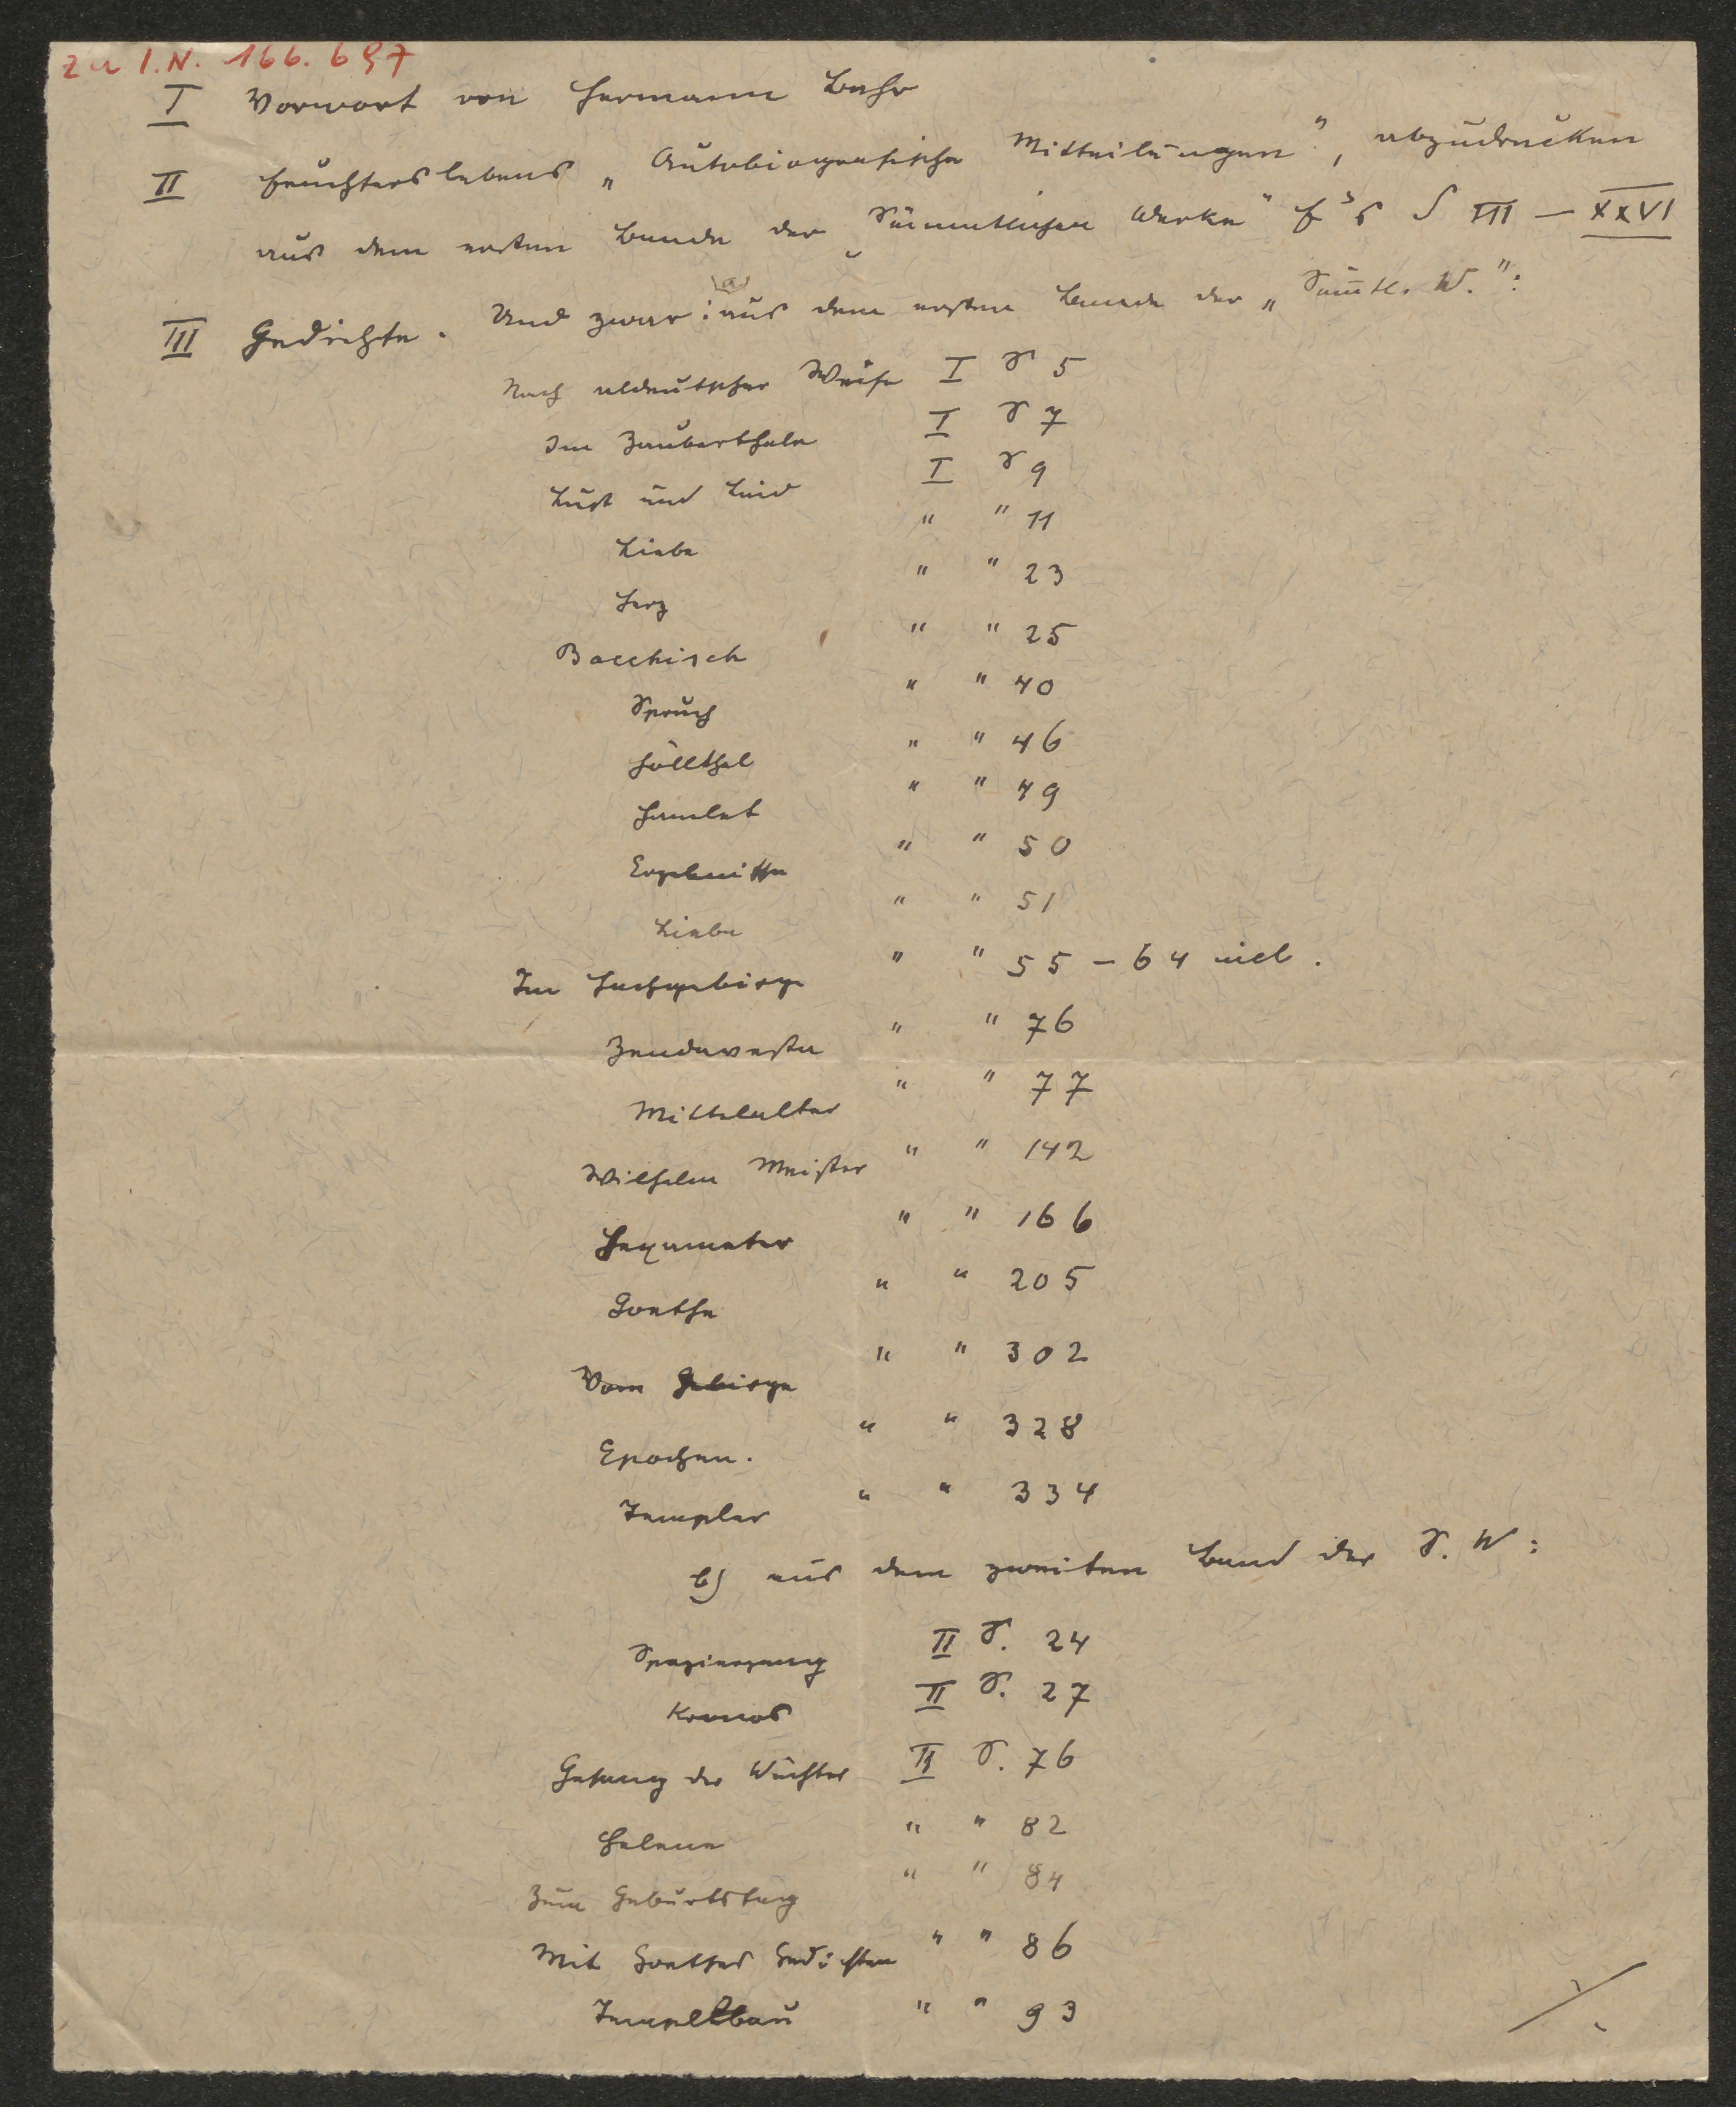 zu I.N. 166.697
I Vorwort von Hermann Bahr
II Feuchterslebens „Autobiografische Mitteilungen", abzudrucken
aus dem ersten Bande der „Sämmtlichen Werke" F's S III – XXVI
III Gedichte. Und zwar: a) aus dem ersten Bande der „Sämtl. W.":
Nach altdeutscher Weise I S 5
Im Zauberthale I S 7
Lust und Leid I S 9
Liebe " " 11
Herz " " 23
Bacchisch " " 25
Spruch " " 40
Höllthal " " 46
Hamlet " " 49
Ergebnisse " " 50
Liebe " " 51
Im Hochgebirge " " 55 – 64 incl.
Zendavesta " " 76
Mittelalter " " 77
Wilhelm Meister " " 142
Hexameter " " 166
Goethe " " 205
Vom Gebirge " " 302
Epochen. " " 328
Templer " " 334
b) aus dem zweiten Band der S. W:
Spaziergang II S. 24
Kronos II S. 27
Gesang der Wächter II S. 76
Helena " " 82
Zum Geburtstag " " 84
Mit Goethes Gedichten " " 86
Tempelbau " " 93